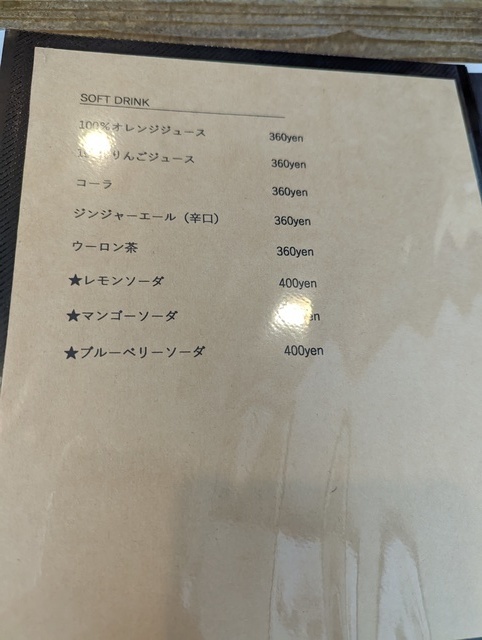 SOFT DRINK
100%オレンジジュース 360yen
りんごジュース 360yen
コーラ 360yen
ジンジャーエール（辛口） 360yen
ウーロン茶 360yen
★レモンソーダ 400yen
★マンゴーソーダ yen
★ブルーベリーソーダ 400yen